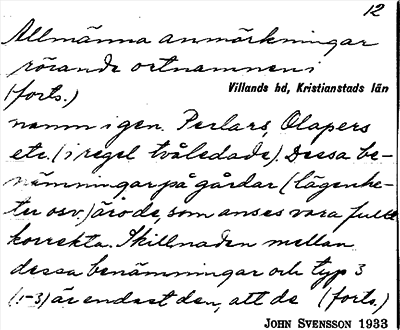 12
Allmänna anmärkningar
rörande ortnamnen i
Villands hd, Kristianstads län
(forts.)
namn i gen. Perlars, Olapers
etc. (i regel tvåledade). Dessa be-
nämningar på gårdar (lägenhe-
ter osv.) äro de, som anses vara fullt
korrekta. Skillnaden mellan
dessa benämningar och typ 3
(1-3) är endast den, att de (forts.)
JOHN SVENSSON 1933